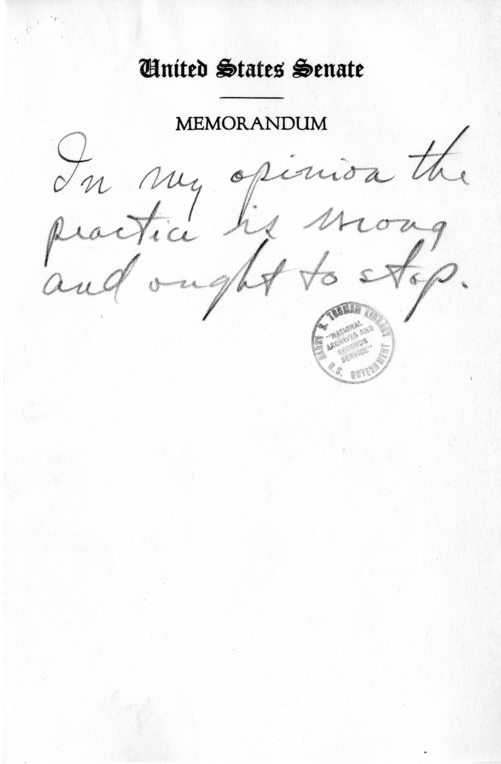 United States Senate
MEMORANDUM
In my opinion the
practice is wrong
and ought to stop.
HARRY S. TRUMAN LIBRARY
"NATIONAL
ARCHIVES AND
RECORDS
SERVICE"
U.S. GOVERNMENT